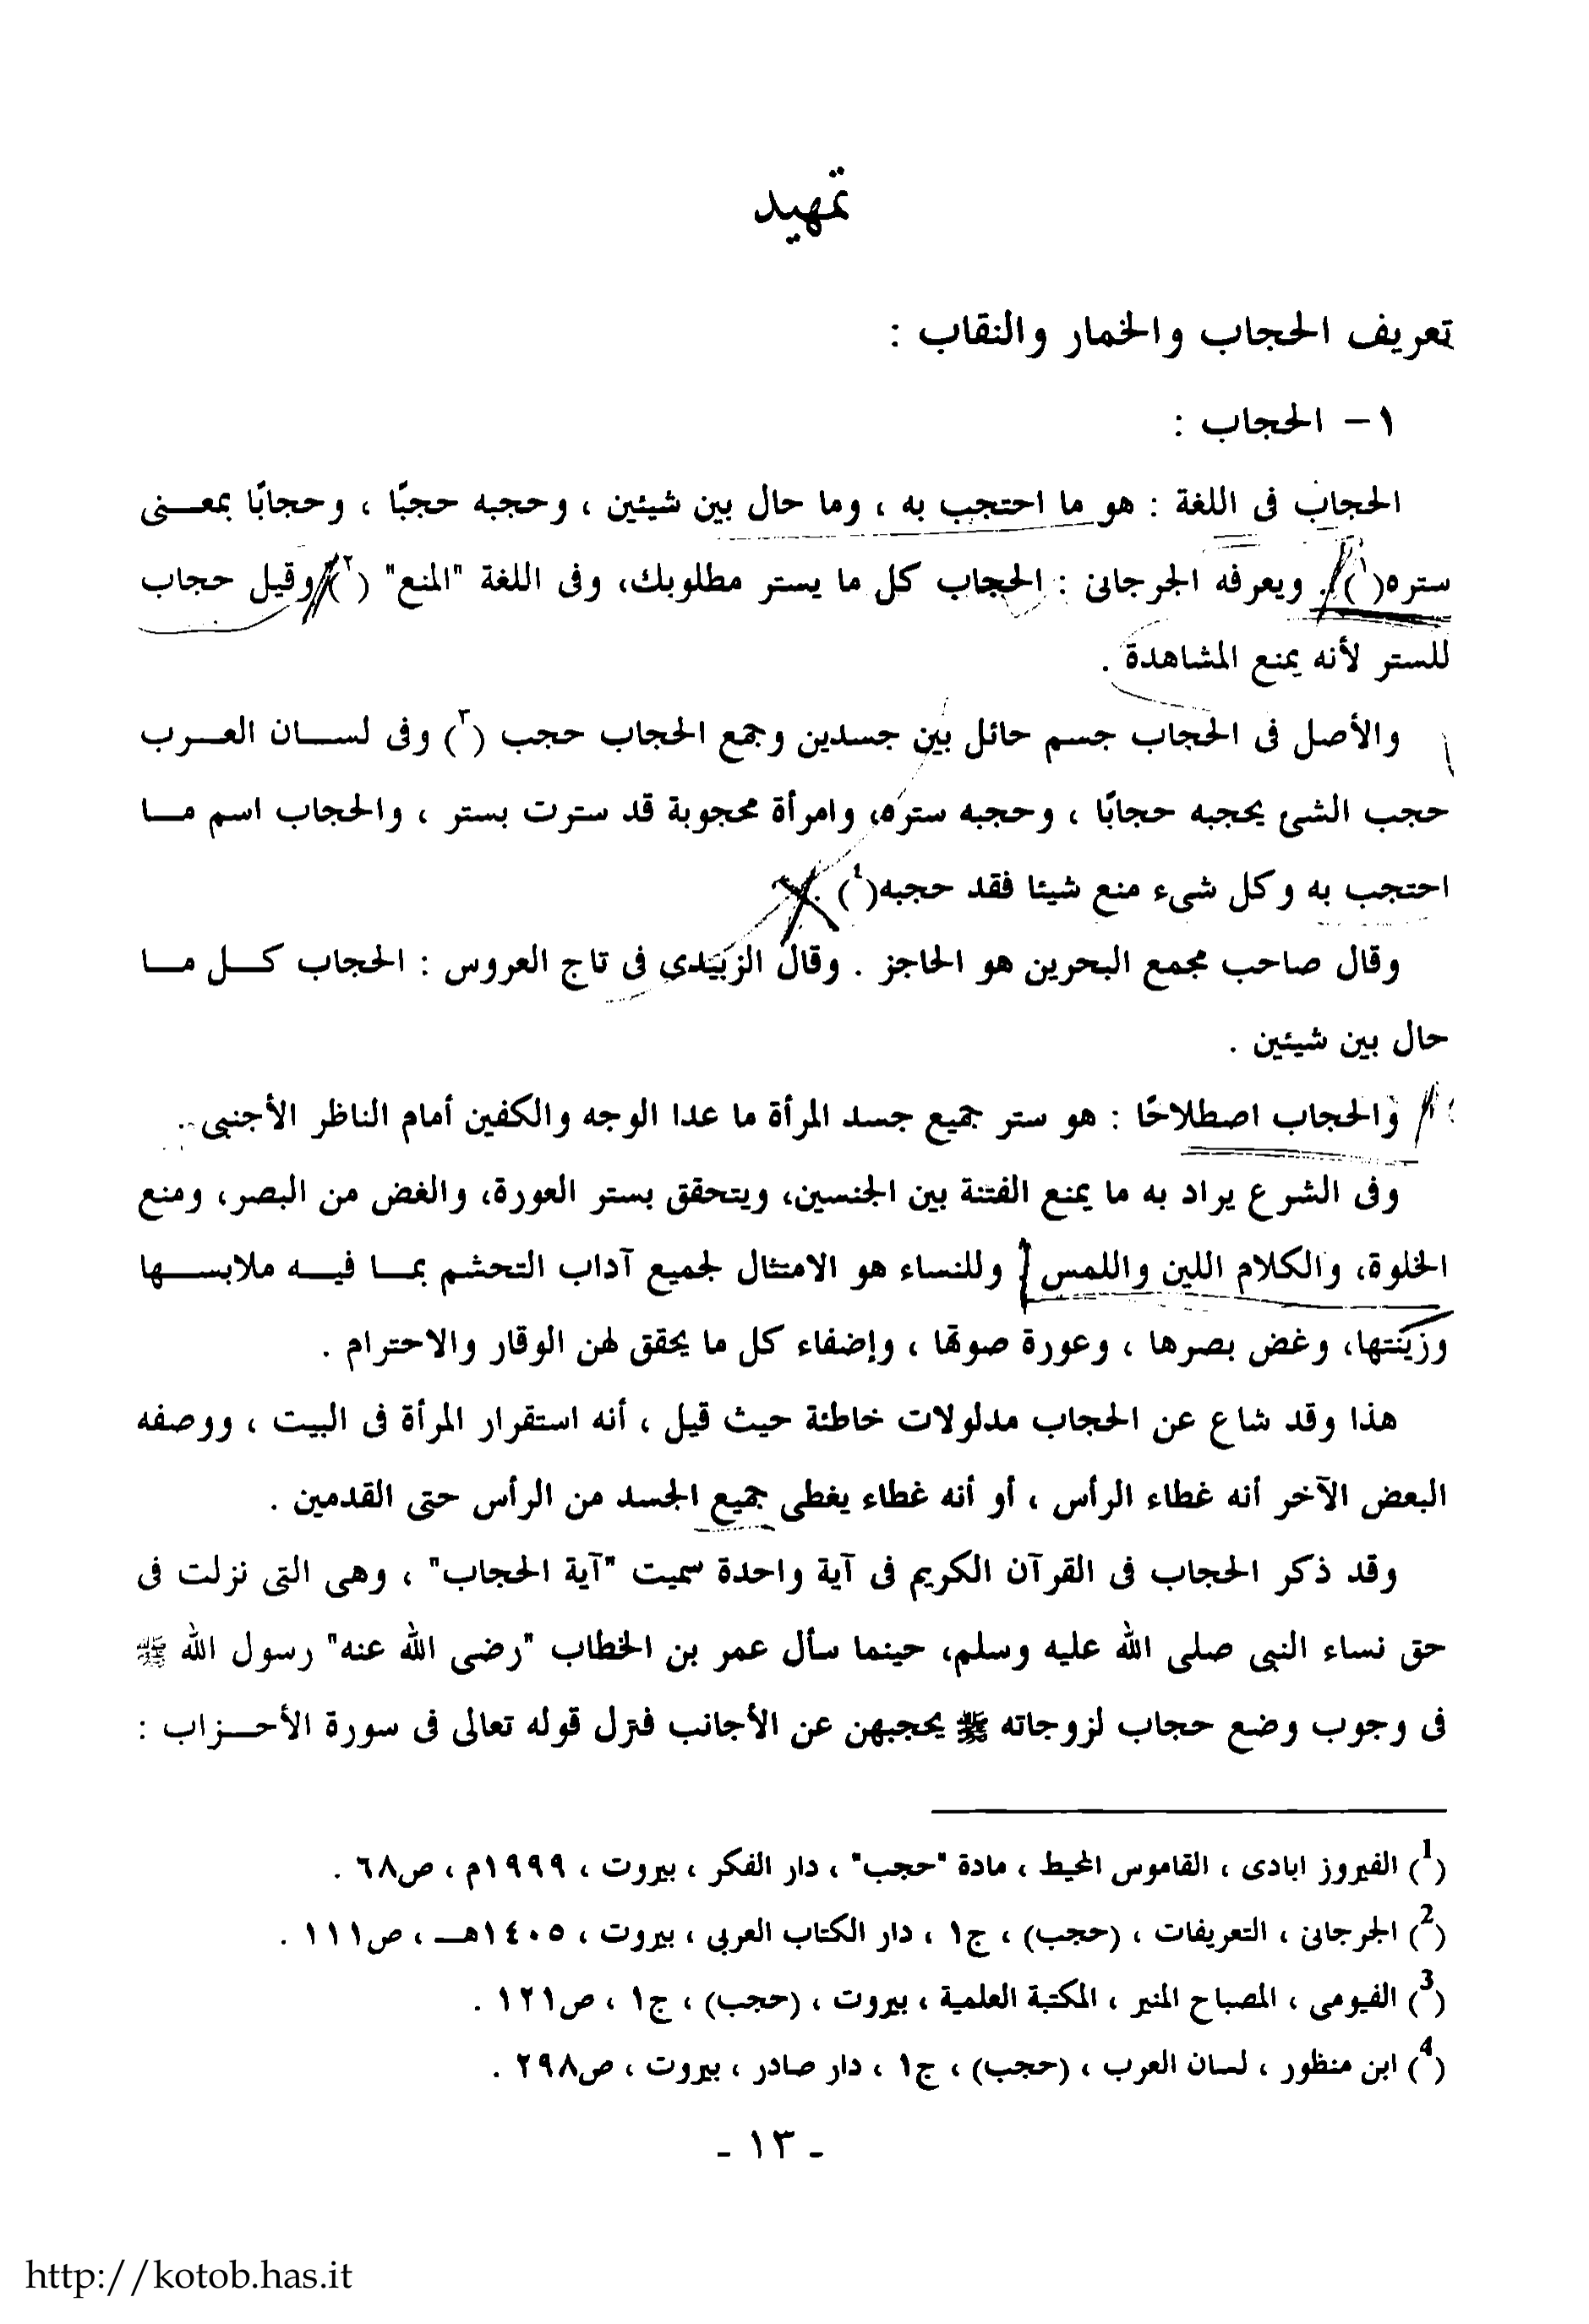 تمهيد
تعريف الحجاب والخمار والنقاب :
١ – الحجاب :
الحجاب فى اللغة : هو ما احتجب به ، وما حال بين شيئين ، وحجبه حجبًا ، وحجابًا بمعنى
ستره(١). ويعرفه الجرجانى : الحجاب كل ما يستر مطلوبك، وفى اللغة "المنع" (٢) وقيل حجاب
للستر لأنه يمنع المشاهدة .
والأصل فى الحجاب جسم حائل بين جسدين وجمع الحجاب حجب (٣) وفى لسان العرب
حجب الشئ يحجبه حجابًا ، وحجبه ستره، وامرأة محجوبة قد سترت بستر ، والحجاب اسم ما
احتجب به وكل شىء منع شيئا فقد حجبه(٤) .
وقال صاحب مجمع البحرين هو الحاجز . وقال الزبيدى فى تاج العروس : الحجاب كل ما
حال بين شيئين .
والحجاب اصطلاحًا : هو ستر جميع جسد المرأة ما عدا الوجه والكفين أمام الناظر الأجنبى .
وفى الشرع يراد به ما يمنع الفتنة بين الجنسين، ويتحقق بستر العورة، والغض من البصر، ومنع
الخلوة، والكلام اللين واللمس . وللنساء هو الامتثال لجميع آداب التحشم بما فيه ملابسها
وزينتها، وغض بصرها ، وعورة صوتها ، وإضفاء كل ما يحقق لهن الوقار والاحترام .
هذا وقد شاع عن الحجاب مدلولات خاطئة حيث قيل ، أنه استقرار المرأة فى البيت ، ووصفه
البعض الآخر أنه غطاء الرأس ، أو أنه غطاء يغطى جميع الجسد من الرأس حتى القدمين .
وقد ذكر الحجاب فى القرآن الكريم فى آية واحدة سميت "آية الحجاب" ، وهى التى نزلت فى
حق نساء النبى صلى الله عليه وسلم، حينما سأل عمر بن الخطاب "رضى الله عنه" رسول الله ﷺ
فى وجوب وضع حجاب لزوجاته ﷺ يحجبهن عن الأجانب فنزل قوله تعالى فى سورة الأحزاب :
(1) الفيروز ابادى ، القاموس المحيط ، مادة "حجب" ، دار الفكر ، بيروت ، ١٩٩٩م ، ص٦٨ .
(2) الجرجانى ، التعريفات ، (حجب) ، ج١ ، دار الكتاب العربى ، بيروت ، ١٤٠٥هـ ، ص١١١ .
(3) الفيومى ، المصباح المنير ، المكتبة العلمية ، بيروت ، (حجب) ، ج١ ، ص١٢١ .
(4) ابن منظور ، لسان العرب ، (حجب) ، ج١ ، دار صادر ، بيروت ، ص٢٩٨ .
- ١٣ -
http://kotob.has.it